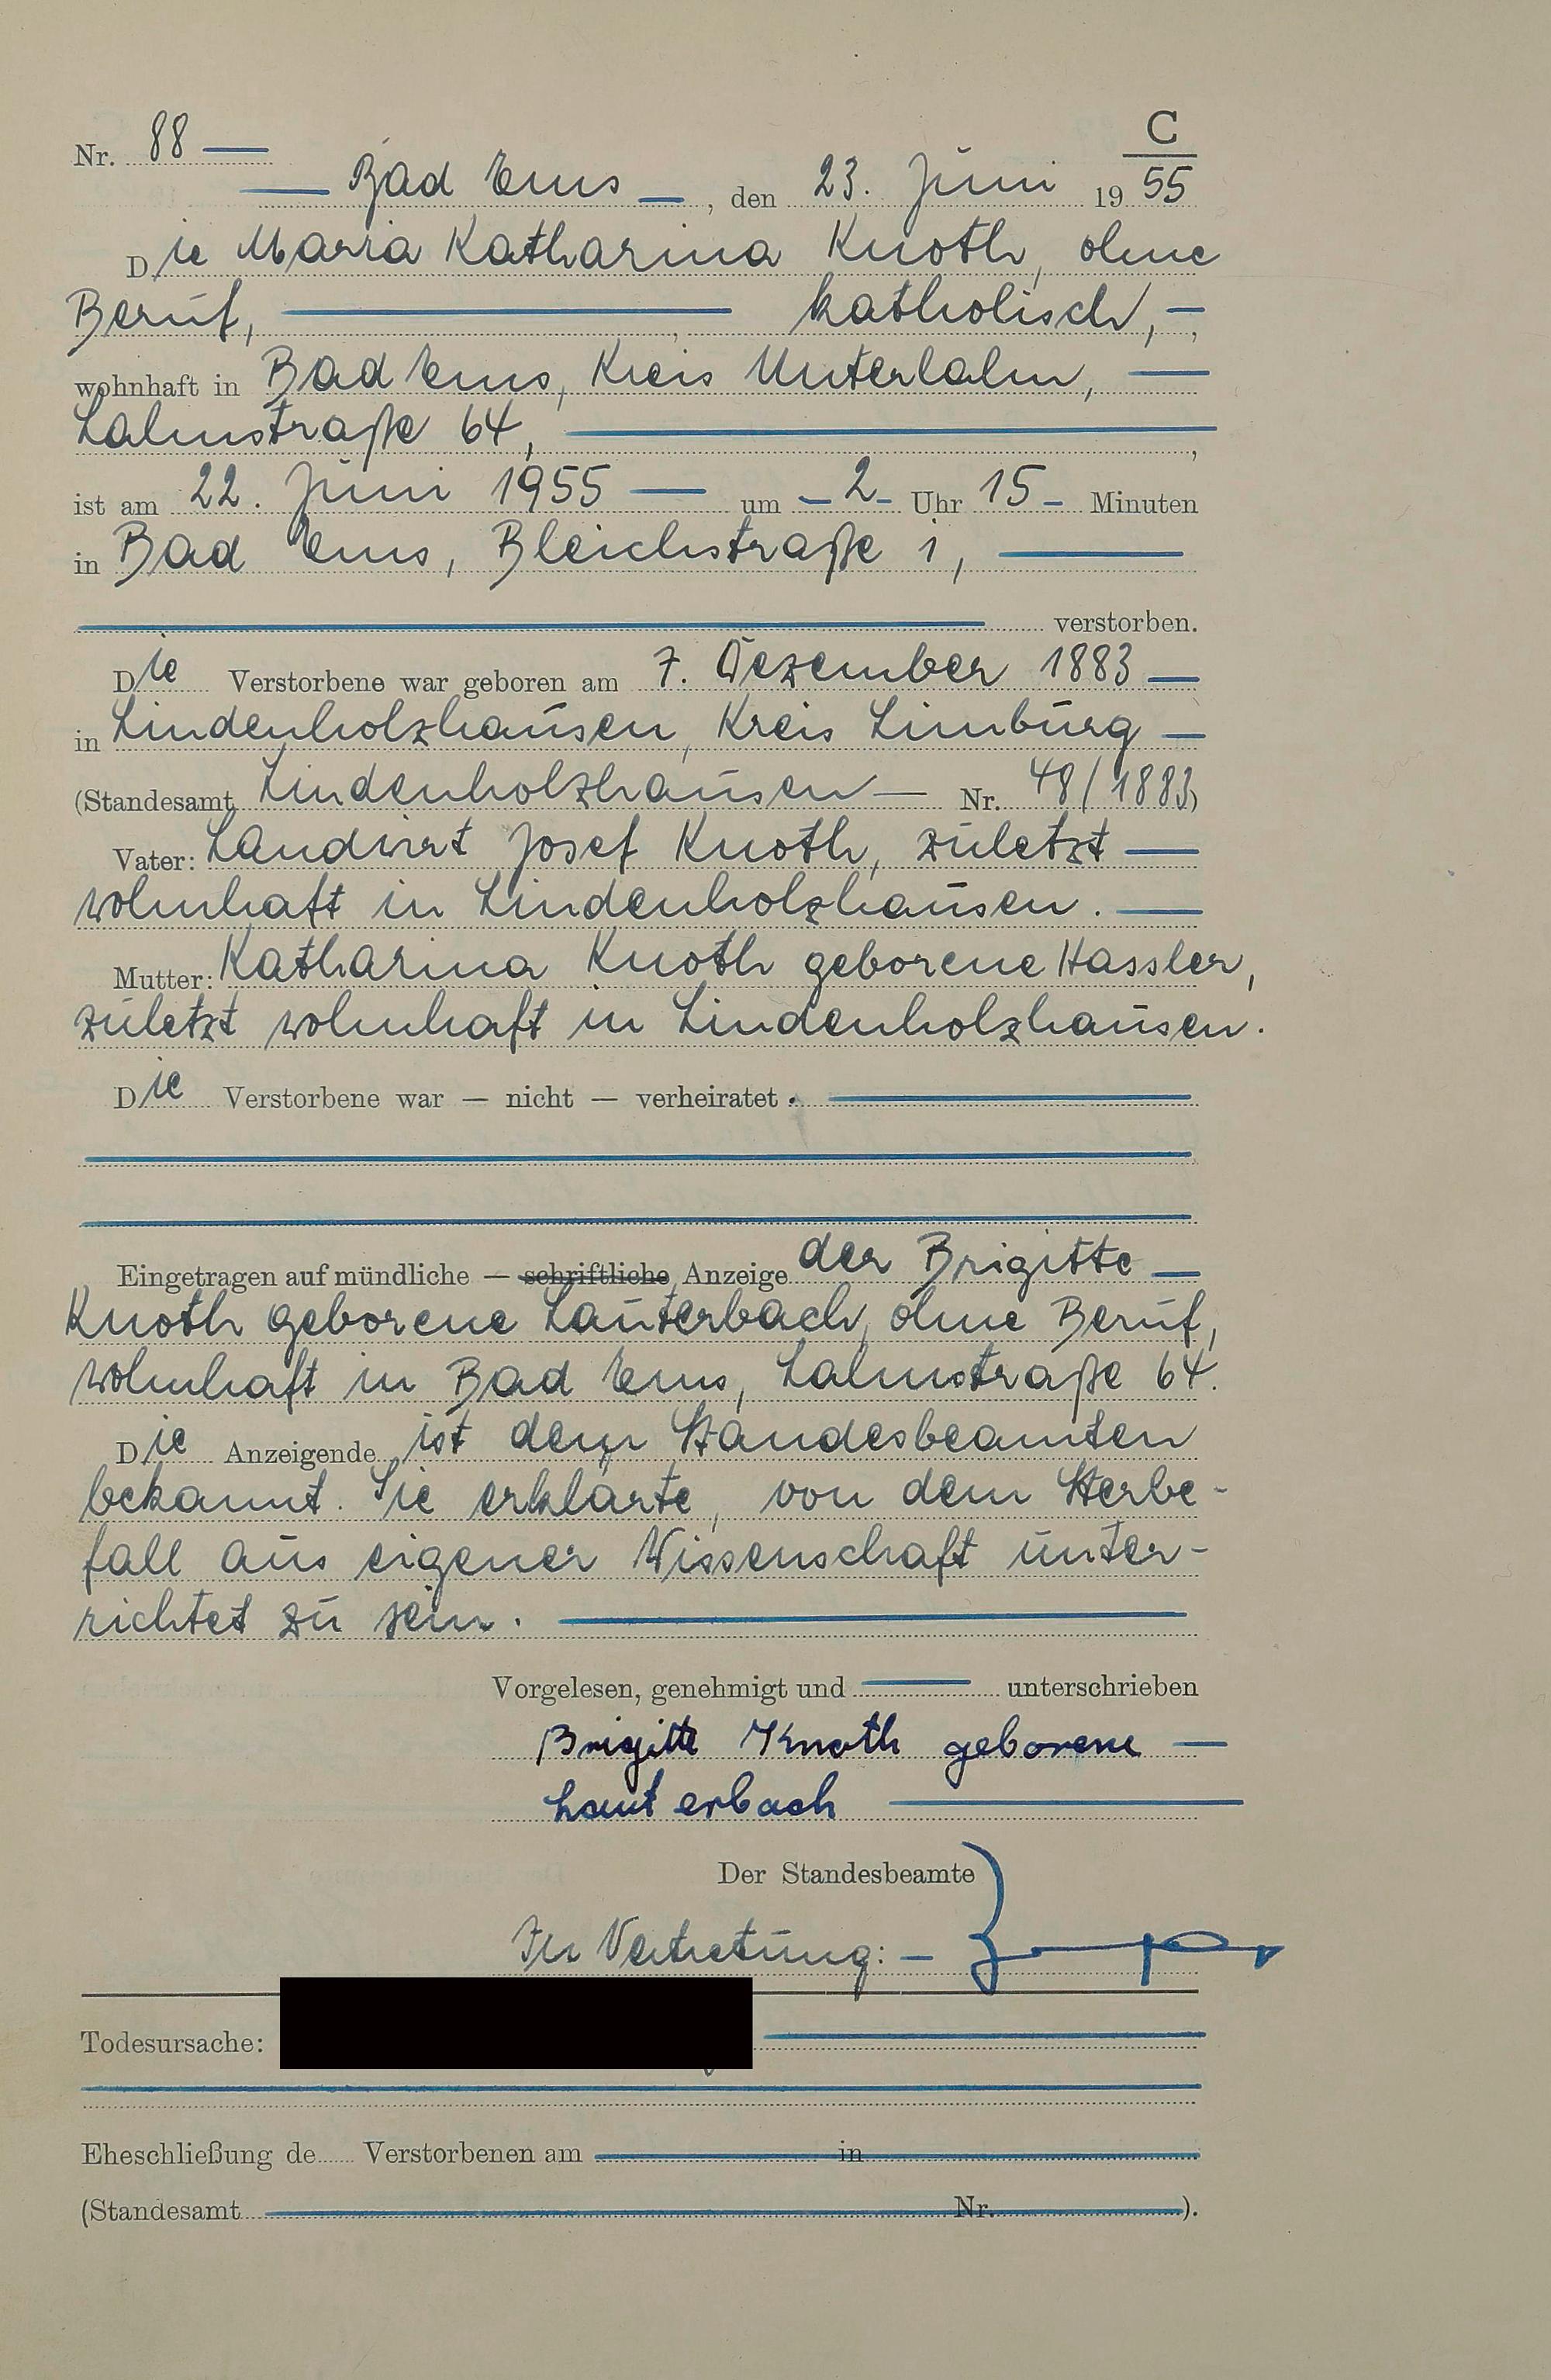 C
Nr. 88 —
— Bad Ems —, den 23. Juni 1955
Die Maria Katharina Knoth, ohne
Beruf, — katholisch, —,
wohnhaft in Bad Ems, Kreis Unterlahn, —
Lahnstraße 64, —,
ist am 22. Juni 1955 — um — 2 — Uhr 15 — Minuten
in Bad Ems, Bleichstraße 1, —
— verstorben.
Die Verstorbene war geboren am 7. Dezember 1883 —
in Lindenholzhausen, Kreis Limburg —
(Standesamt Lindenholzhausen — Nr. 48/1883)
Vater: Landwirt Josef Knoth, zuletzt —
wohnhaft in Lindenholzhausen. —
Mutter: Katharina Knoth geborene Hassler,
zuletzt wohnhaft in Lindenholzhausen.
Die Verstorbene war — nicht — verheiratet. —
Eingetragen auf mündliche — schriftliche Anzeige der Brigitte —
Knoth geborene Lauterbach, ohne Beruf,
wohnhaft in Bad Ems, Lahnstraße 64.
Die Anzeigende ist dem Standesbeamten
bekannt. Sie erklärte, von dem Sterbe-
fall aus eigener Wissenschaft unter-
richtet zu sein. —
Vorgelesen, genehmigt und — unterschrieben
Brigitte Knoth geborene —
Lauterbach —
Der Standesbeamte
In Vertretung: —
Todesursache:
Eheschließung de..... Verstorbenen am — in —
(Standesamt — Nr. —).